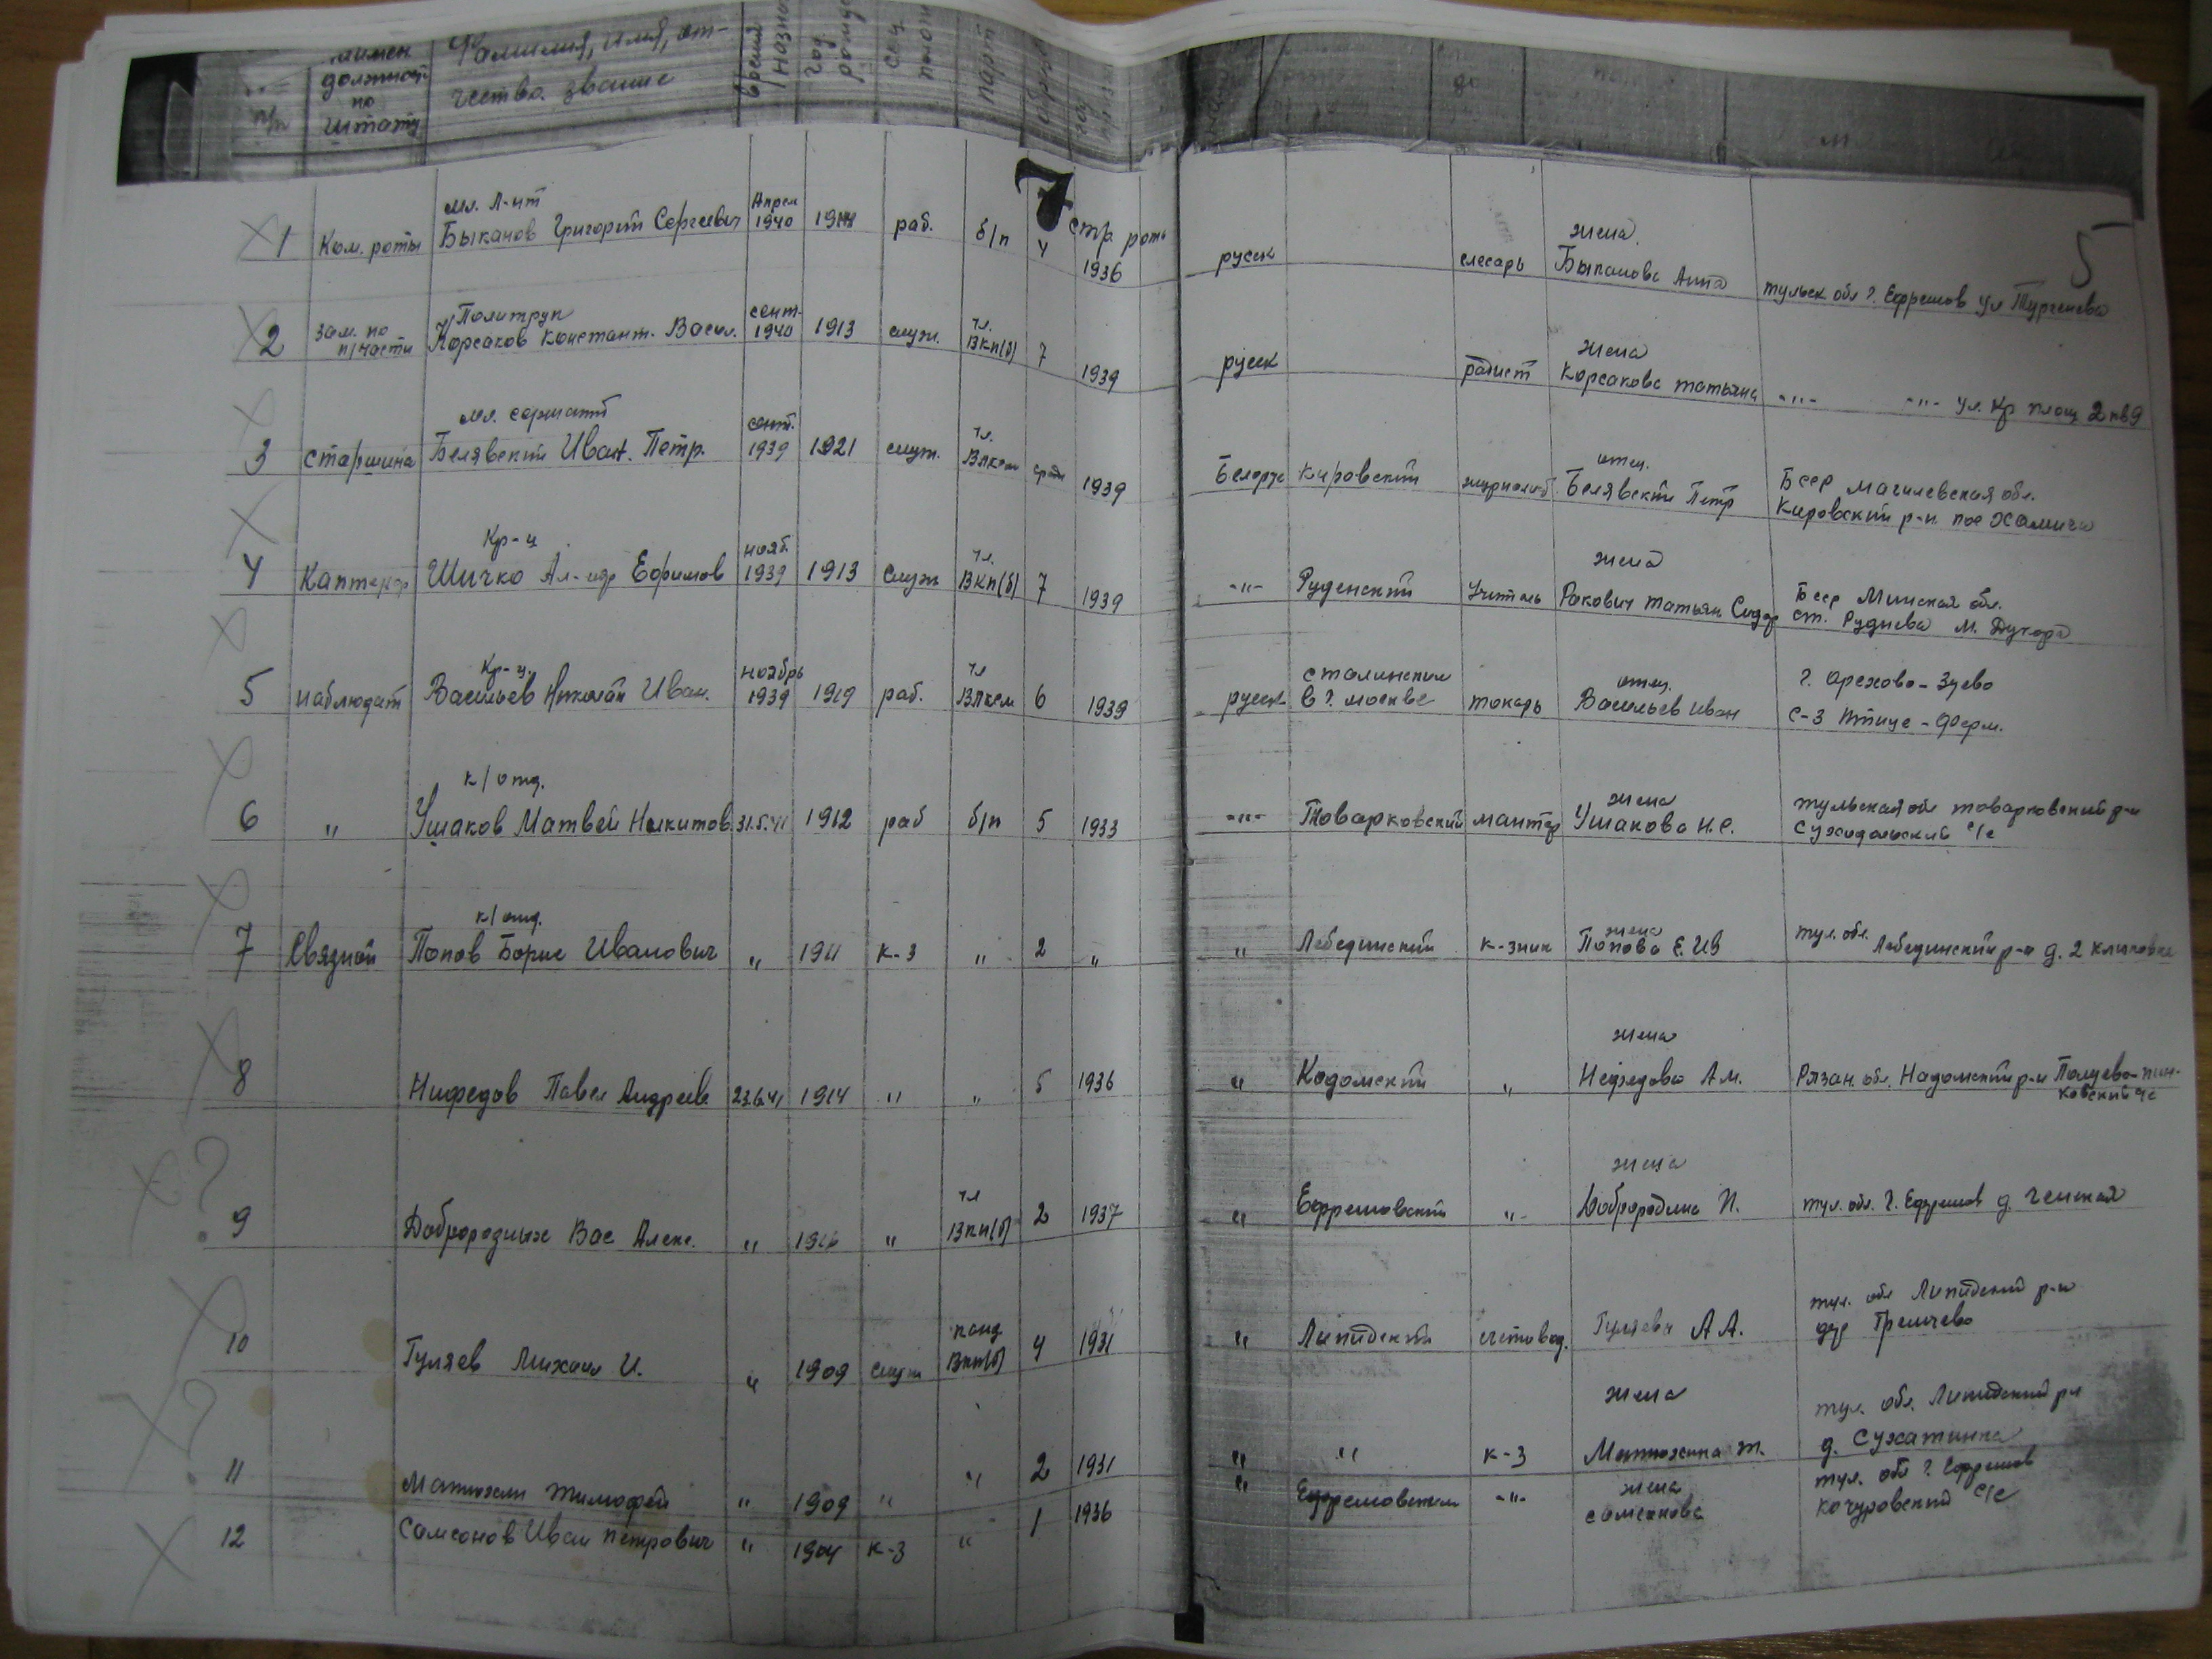 п/п
должност
по
штату
Фамилия, имя, от-
чество. звание
время
назнач
год
рожд
соц
полож
парт
7 стр. рота
5
мл. л-нт
1 Ком. роты Быканов Григорий Сергеевич Апрел 1940 раб. б/п 4 1936 русск слесарь жена Быканова Анна тульск. обл г. Ефремов ул Тургенева
Политрук
2 зам. по п/части Корсаков Констант. Васил. сент. 1940 1913 служ. чл. ВКП(б) 7 1939 русск радист жена Корсакова Татьяна -"- -"- ул. Кр площ 2 кв 9
мл. сержант
3 старшина Белявский Иван. Петр. сент. 1939 1921 служ. чл. Влксм средн 1939 Белорус Кировский отец. Белявский Петр Бсср Магилевская обл.
Кировский р-н. пос
Кр-ц
4 Каптенар Шичко Ал-ндр Ефимов нояб. 1939 1913 служ чл. ВКП(б) 7 1939 -"- Руденский учитель жена Ракович Татьян Сидор Бсср Минская обл.
ст. Руднева м. Дукора
Кр-ц.
5 наблюдат Васильев Николай Иван. ноябрь 1939 1919 раб. чл Влксм 6 1939 русск Сталинский в г. Москве токарь отец. Васильев Иван г. Орехово-Зуево
с-з Птице-ферм.
к/отд.
6 " Ушаков Матвей Никитов 31.5.41 1912 раб б/п 5 1933 -"- Товарковский мантер жена Ушакова Н.С. тульская обл товарковский р-н
Суходольский с/с
к/отд.
7 Связной Попов Борис Иванович " 1911 к-з " 2 " " Лебединский к-зник жена Попова Е. Ив тул. обл. Лебединский р-н д. 2
8 Нифедов Павел Андреев 23.6.41 1914 " " 5 1936 " Кадомский " жена Нефедова А м. Рязан. обл. Кадомский р-н
? 9 Доброродных Вас Алекс. " " чл ВКП(б) 2 1937 " Ефремовский " жена Доброродных П. тул. обл. г. Ефремов д.
10 Гуляев Михаил И. " 1909 служ канд ВКП(б) 4 1931 " счетовод. Гуляева А А. тул. обл р-н
? 11 Матюхин Тимофей " 1909 " " 2 1931 " " к-з жена Матюхина тул. обл. р-н
д.
12 Самсонов Иван Петрович " 1904 к-з " 1 1936 " Ефремовский -"- жена Самсонова тул. обл г. Ефремов
с/с